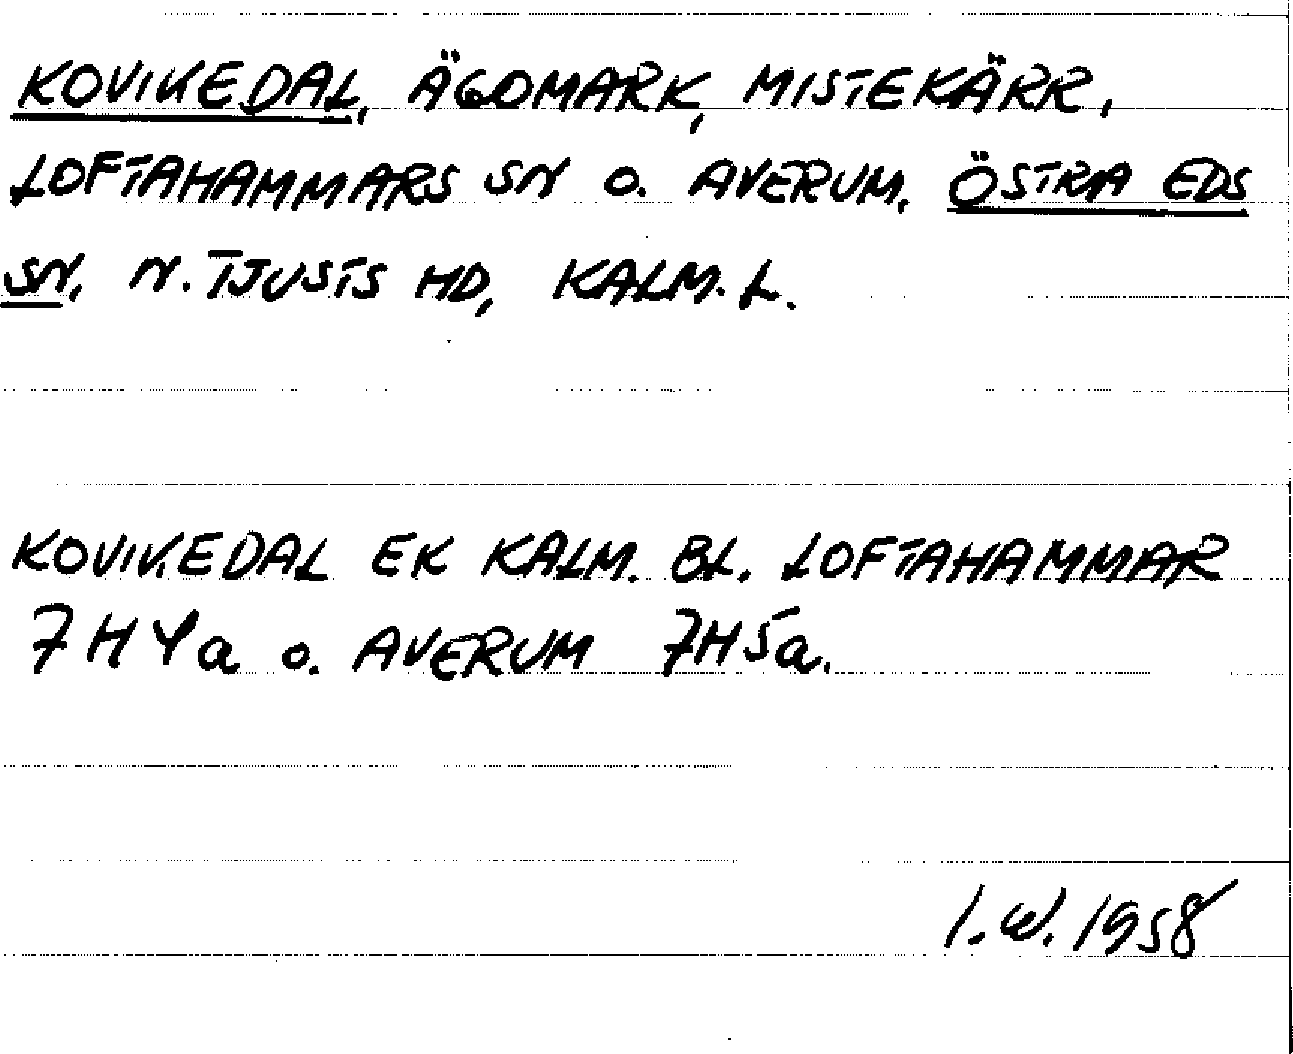 KOVIKEDAL, ÄGOMARK, MISTEKÄRR,
LOFTAHAMMARS SN O. AVERUM, ÖSTRA EDS
SN, N. TJUSTS HD, KALM. L.
KOVIKEDAL EK KALM. BL. LOFTAHAMMAR
7H4a o. AVERUM 7H5a.
I.W. 1958